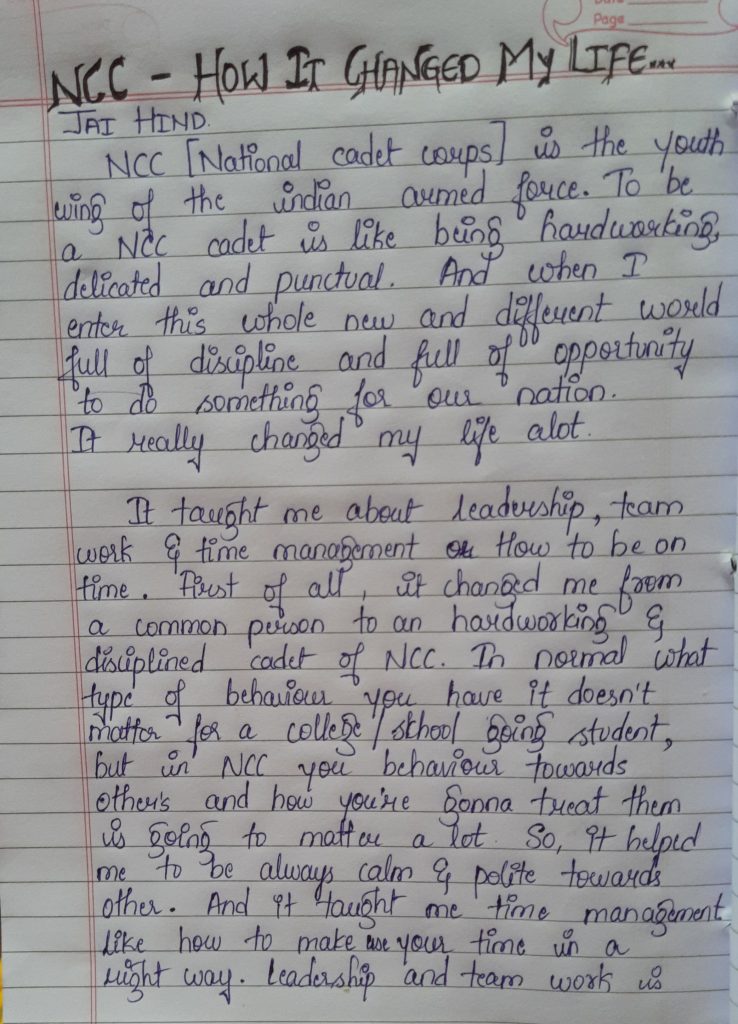 Page
NCC - HOW IT CHANGED MY LIFE...
JAI HIND.
NCC [National cadet corps] is the youth
wing of the indian armed force. To be
a NCC cadet is like being hardworking,
delicated and punctual. And when I
enter this whole new and different world
full of discipline and full of opportunity
to do something for our nation.
It really changed my life alot.
It taught me about leadership, team
work & time management or How to be on
time. First of all, it changed me from
a common person to an hardworking &
disciplined cadet of NCC. In normal what
type of behaviour you have it doesn't
matter for a college/school going student,
but in NCC you behaviour towards
other's and how you're gonna treat them
is going to matter a lot. So, it helped
me to be always calm & polite towards
other. And it taught me time management
like how to make use your time in a
right way. Leadership and team work is